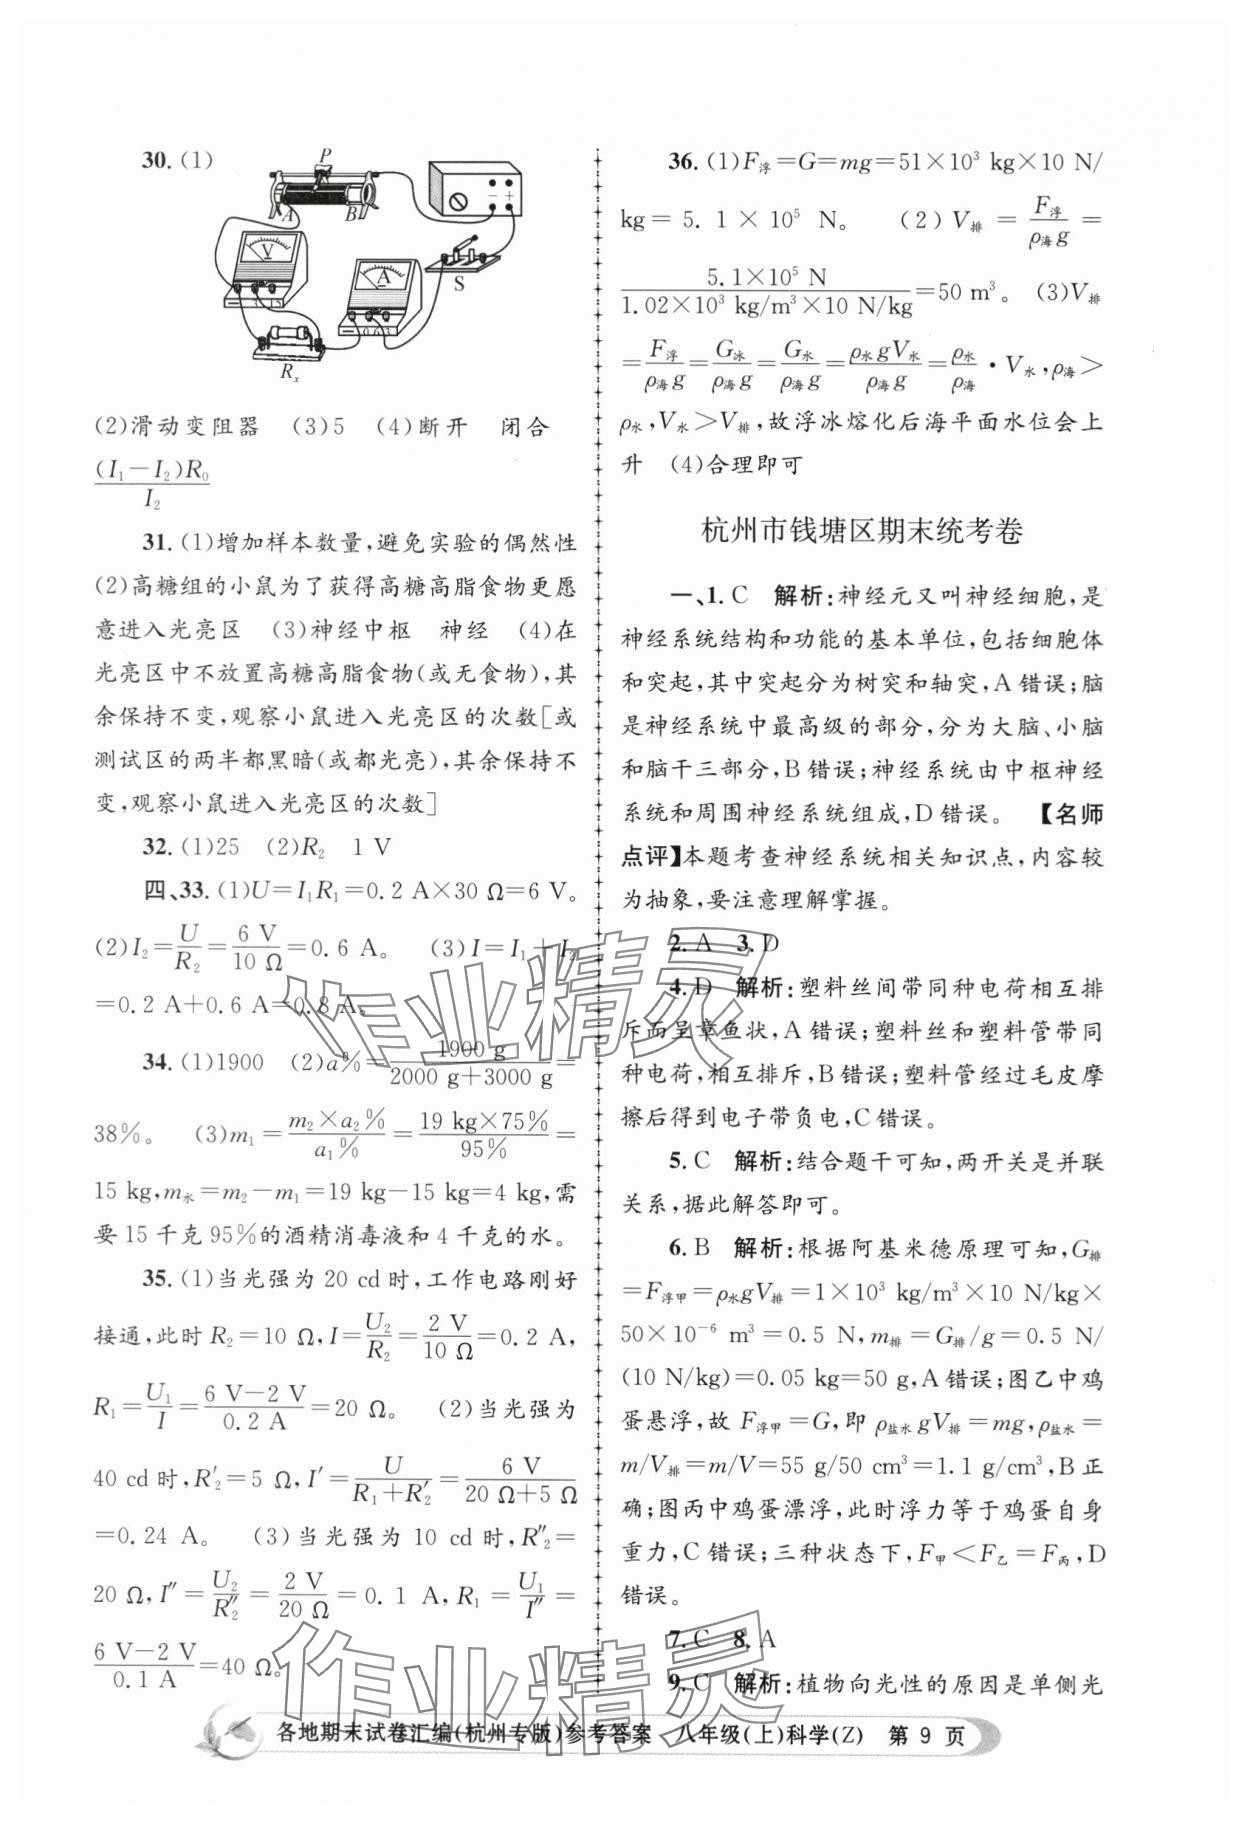 30.(1)
P
A B
V
3 15
A
0.6 3
S
Rₓ
− +
(2)滑动变阻器 (3)5 (4)断开 闭合
(I₁−I₂)R₀/I₂
31.(1)增加样本数量,避免实验的偶然性
(2)高糖组的小鼠为了获得高糖高脂食物更愿
意进入光亮区 (3)神经中枢 神经 (4)在
光亮区中不放置高糖高脂食物(或无食物),其
余保持不变,观察小鼠进入光亮区的次数[或
测试区的两半都黑暗(或都光亮),其余保持不
变,观察小鼠进入光亮区的次数]
32.(1)25 (2)R₂ 1 V
四、33.(1)U=I₁R₁=0.2 A×30 Ω=6 V。
(2)I₂=U/R₂=6 V/10 Ω=0.6 A。 (3)I=I₁+I₂
=0.2 A+0.6 A=0.8 A。
34.(1)1900 (2)a%=1900 g/(2000 g+3000 g)=
38%。 (3)m₁=(m₂×a₂%)/(a₁%)=(19 kg×75%)/95%=
15 kg,m水=m₂−m₁=19 kg−15 kg=4 kg,需
要15千克95%的酒精消毒液和4千克的水。
35.(1)当光强为20 cd时,工作电路刚好
接通,此时R₂=10 Ω,I=U₂/R₂=2 V/10 Ω=0.2 A,
R₁=U₁/I=(6 V−2 V)/0.2 A=20 Ω。 (2)当光强为
40 cd时,R′₂=5 Ω,I′=U/(R₁+R′₂)=6 V/(20 Ω+5 Ω)
=0.24 A。 (3)当光强为10 cd时,R″₂=
20 Ω,I″=U₂/R″₂=2 V/20 Ω=0.1 A,R₁=U₁/I″=
(6 V−2 V)/0.1 A=40 Ω。
36.(1)F浮=G=mg=51×10³ kg×10 N/
kg=5.1×10⁵ N。 (2)V排=F浮/ρ海g=
5.1×10⁵ N/(1.02×10³ kg/m³×10 N/kg)=50 m³。(3)V排
=F浮/ρ海g=G冰/ρ海g=G水/ρ海g=ρ水gV水/ρ海g=ρ水/ρ海·V水,ρ海>
ρ水,V水>V排,故浮冰熔化后海平面水位会上
升 (4)合理即可
杭州市钱塘区期末统考卷
一、1.C 解析:神经元又叫神经细胞,是
神经系统结构和功能的基本单位,包括细胞体
和突起,其中突起分为树突和轴突,A错误;脑
是神经系统中最高级的部分,分为大脑、小脑
和脑干三部分,B错误;神经系统由中枢神经
系统和周围神经系统组成,D错误。 【名师
点评】本题考查神经系统相关知识点,内容较
为抽象,要注意理解掌握。
2.A 3.D
4.D 解析:塑料丝间带同种电荷相互排
斥而呈章鱼状,A错误;塑料丝和塑料管带同
种电荷,相互排斥,B错误;塑料管经过毛皮摩
擦后得到电子带负电,C错误。
5.C 解析:结合题干可知,两开关是并联
关系,据此解答即可。
6.B 解析:根据阿基米德原理可知,G排
=F浮甲=ρ水gV排=1×10³ kg/m³×10 N/kg×
50×10⁻⁶ m³=0.5 N,m排=G排/g=0.5 N/
(10 N/kg)=0.05 kg=50 g,A错误;图乙中鸡
蛋悬浮,故F浮甲=G,即ρ盐水gV排=mg,ρ盐水=
m/V排=m/V=55 g/50 cm³=1.1 g/cm³,B正
确;图丙中鸡蛋漂浮,此时浮力等于鸡蛋自身
重力,C错误;三种状态下,F甲<F乙=F丙,D
错误。
7.C 8.A
9.C 解析:植物向光性的原因是单侧光
作业精灵
作业精灵
各地期末试卷汇编(杭州专版)参考答案 八年级(上)科学(Z) 第 9 页